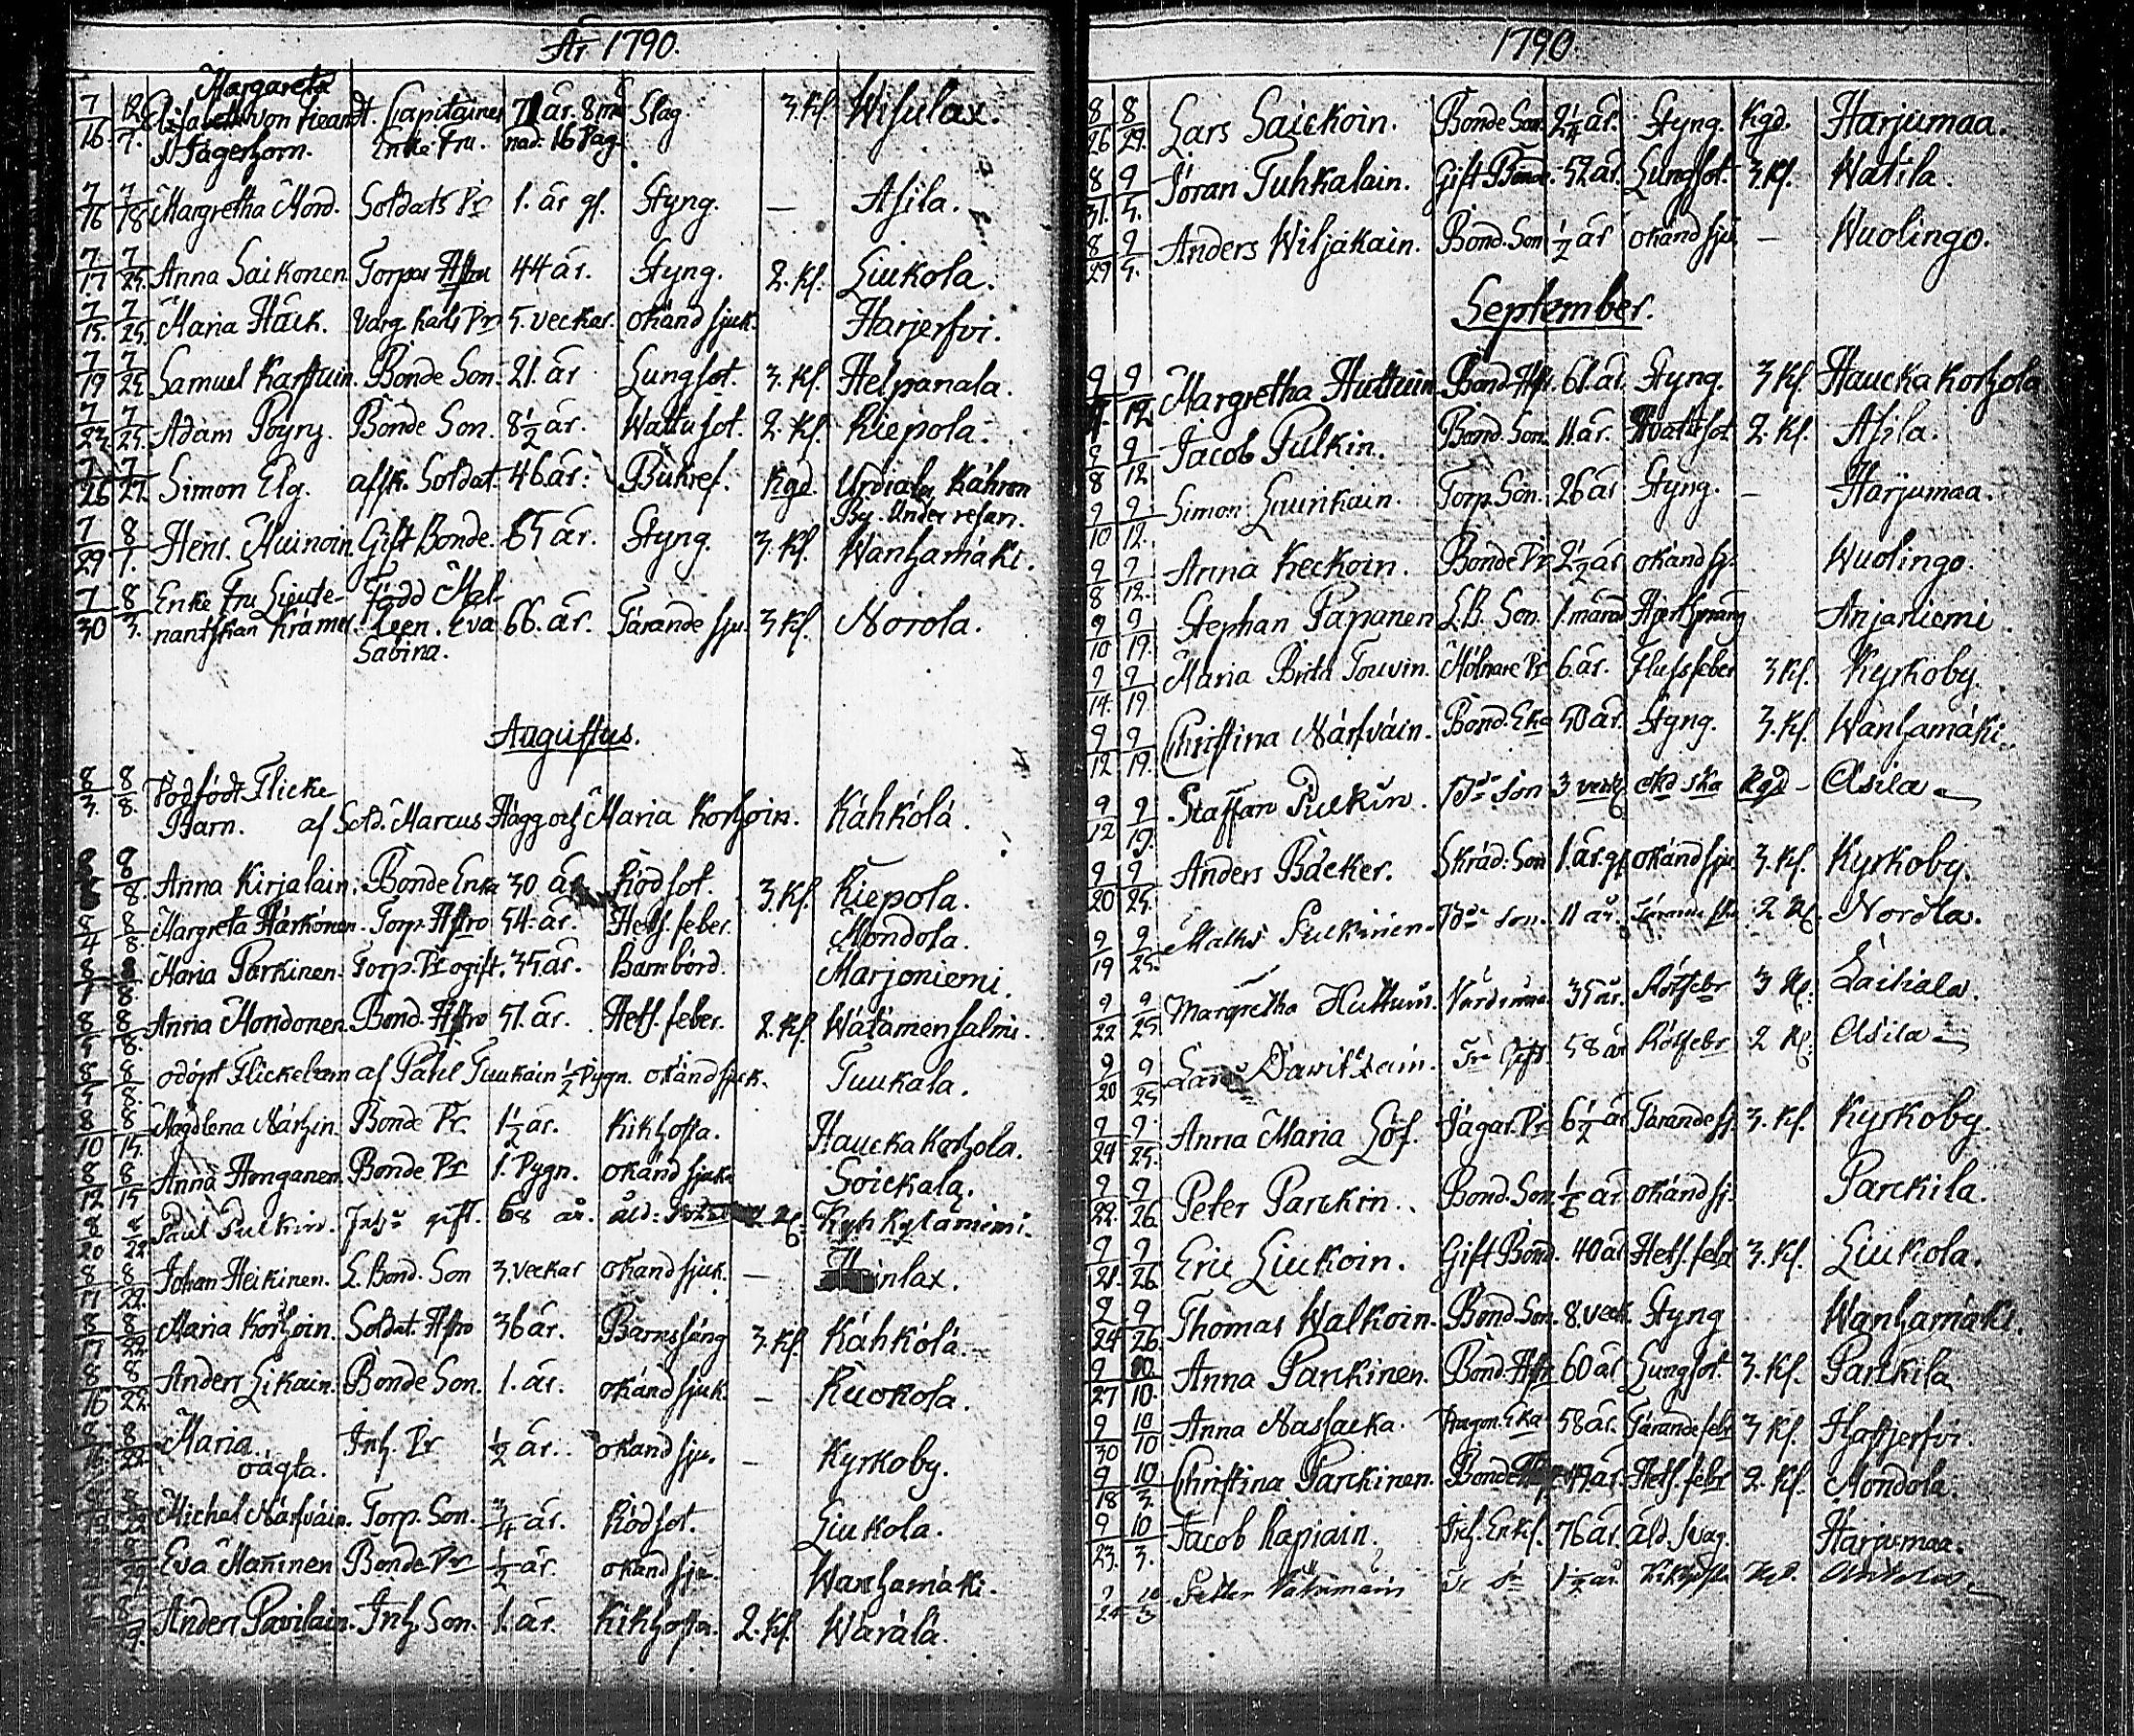 År 1790.
Margareta
7/16. 12/7. Elisabeth von Fieandt. Capitaines 71 år. 8 må Slag. 3. Kl. Wisulax.
N Jägerhorn. Enke Fru. nad. 16 Dag.
7/16 7/18 Margretha Mord. Soldats Pr 1. år gl. Styng. — Asila.
7/17 7/25. Anna Saikonen. Torpar Hstru 44 år. Styng. 2. Kl. Liukola.
7/15. 7/25. Maria Häck. Varg. Karls Pr 5. veckar. okänd sjuk. Harjerfvi.
7/19 7/25. Samuel Karhuin. Bonde Son. 21. år Lungsot. 3. Kl. Helpanala.
7/23. 7/25. Adam Pöyry. Bonde Son. 8 1/2 år. Wattusot. 2. Kl. Riepola.
7/26 7/27. Simon Elg. afsk. Soldat. 46 år. Bukref. Kgd. Urdiala, Kähron
By. Under resan.
7/29 8/1. Henr. Muinoin. Gift Bonde. 65 år. Styng. 3. Kl. Wanhamäki.
Enke Fru Lieute- Född Mal-
7/30 8/3. nantskan Krämer. leen. Eva 66. år. Tärande sju. 3 Kl. Norola.
Sabina.
Augustus.
8/3. 8/8. Dödfödt Flicke
Barn. af Sold. Marcus Hägg och Maria Korhoin. Kähkölä.
8/8. Anna Kirjalain. Bonde Enka 30 år Rödsot. 3. Kl. Riepola.
8/4 8/8. Margreta Härkönen. Torp. Hstro 54. år. Hets. feber. Mondola.
Maria Parkinen. Torp. Pr ogift. 35. år. Barnbörd. Marjoniemi.
Anna Mondonen. Bond. Hstro 51. år. Hets. feber. 2. Kl. Wätämensalmi.
odöpt Flickebarn af Påhl Tuukain 1/2 Dygn. okänd sjuk. Tuukala.
8/10 8/15. Magdlena Närhin. Bonde Pr. 1 1/2 år. Kikhosta. Haucka Korhola.
8/12 8/15 Anna Honganen Bonde Pr 1. Dygn. okänd sjuk. Soickala.
8/20 8/22 Paul Pulkin. Inhs gift. 68 år. åld: Kyhkyläniemi.
8/17 8/22. Johan Heikinen. L. Bond. Son 3. veckar okänd sjuk. — inlax.
8/17 8/22. Maria Korhoin. Soldat. Hstro 36 år. Barnssäng 3. Kl. Kähkölä.
8/16 8/22. Anders Likain. Bonde Son. 1. år. okänd sjuk. — Kuokola.
8/22. Maria Inh. Pr 1/2 år. okänd sju. — Kyrkoby.
oägta.
Michel Närfväin. Torp. Son. 3/4 år. Rödsot. Liukola.
Eva Maninen Bonde Pr 1/2 år. okänd sju. Wanhamäki.
Anders Pavilain. Inh. Son. 1. år. Kikhosta. 2. Kl. Wärälä.
1790.
8/26 8/29. Lars Saickoin. Bonde Son. 2 1/4 år. Styng. Kgd. Harjumaa.
8/31. 9/5. Jöran Tuhkalain. Gift Bonde. 52 år. Lungsot. 3. Kl. Watila.
8/29 9/5. Anders Wiljakain. Bond. Son 1/2 år okänd sju — Wuolingo.
September.
9/9. 9/12. Margretha Huttuin. Bond. Hstr. 61. år. Styng. 3 Kl. Haucka Korhola
9/8 9/12. Jacob Pulkin. Bond. Son. 11. år. Wattusot. 2. Kl. Asila.
9/10 9/12. Simon Laurikain. Torp. Son. 26 år Styng. — Harjumaa.
9/8 9/12. Anna Keckoin. Bonde Pr 2 1/2 år okänd sj. Wuolingo.
9/10 9/19. Stephan Papanen L. B. Son. 1. månad Hjertsprång Anjaniemi.
9/14. 9/19. Maria Brita Touvin. Mölnare Pr 6. år. Flussfeber 3 Kl. Kyrkoby.
9/12 9/19. Christina Närfväin. Bond. Eka 50 år. Styng. 3. Kl. Wanhamäki.
9/12 9/19. Staffan Pulkin. Bde son 3 veck okd ska Kgd — Asila
9/20 9/25. Anders Bäcker. Skräd: Son 1. år. gl. okänd sju. 3. Kl. Kyrkoby.
9/19 9/25. Mathis Pulkinen. Bde son. 11 år. Tärande 2 Kl. Norola.
9/22 9/25. Margretha Huttuin. 35 år. Rötfebr 3 Kl. Laikiala.
9/20 9/25 Lars Gift. 58 år Rötfebr 2 Kl. Asila
9/24 9/25. Anna Maria Löf. Jägar. Pr 6 1/2 år Tärande sj. 3. Kl. Kyrkoby.
9/22. 9/26. Peter Parckin. Bond. Son. okänd sj. Parckila.
9/21. 9/26. Eric Liukoin. Gift Bond. 40 år Hets. febr 3. Kl. Liukola.
9/24 9/26. Thomas Walkoin. Bond. Son. 8. veck. Styng Wanhamäki.
9/27 10/10. Anna Parckinen. Bond. Hstr 60 år Lungsot. 3. Kl. Parckila
9/30 10/10. Anna Nassacka. Dragon. Eka 58 år. Tärande febr 3 Kl. Haftjerfvi.
9/18 10/3. Christina Parckinen. Bonde 49 år. Hets. febr 2. Kl. Mondola.
9/23. 10/3. Jacob Kapiain. Inh. Enkl. 76 år. åld. svag. Harjumaa.
9/24 10/3 Petter 1 1/2 år. Kikhosta